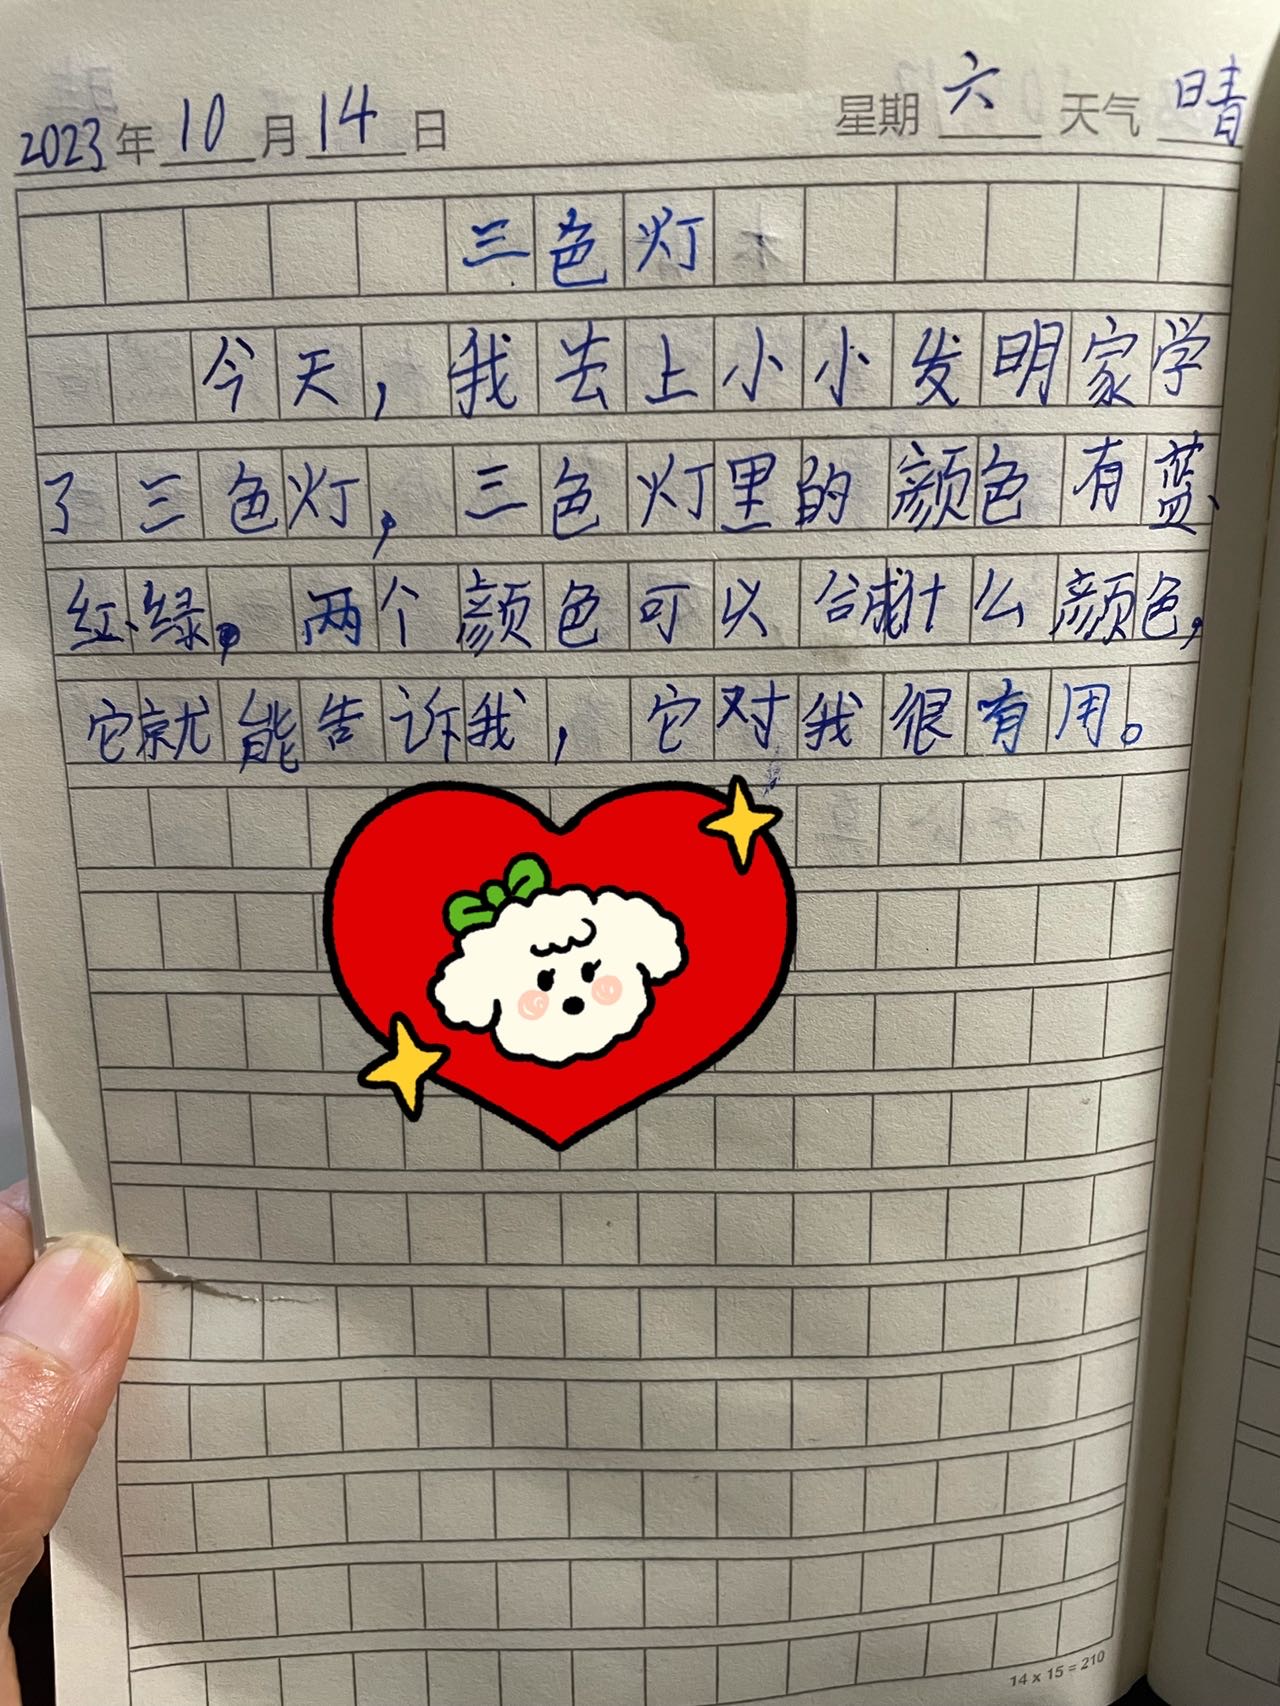 2023年10月14日 星期六 天气晴
三色灯
今天，我去上小小发明家学
了三色灯，三色灯里的颜色有蓝、
红、绿。两个颜色可以合成什么颜色，
它就能告诉我，它对我很有用。
14 x 15 = 210